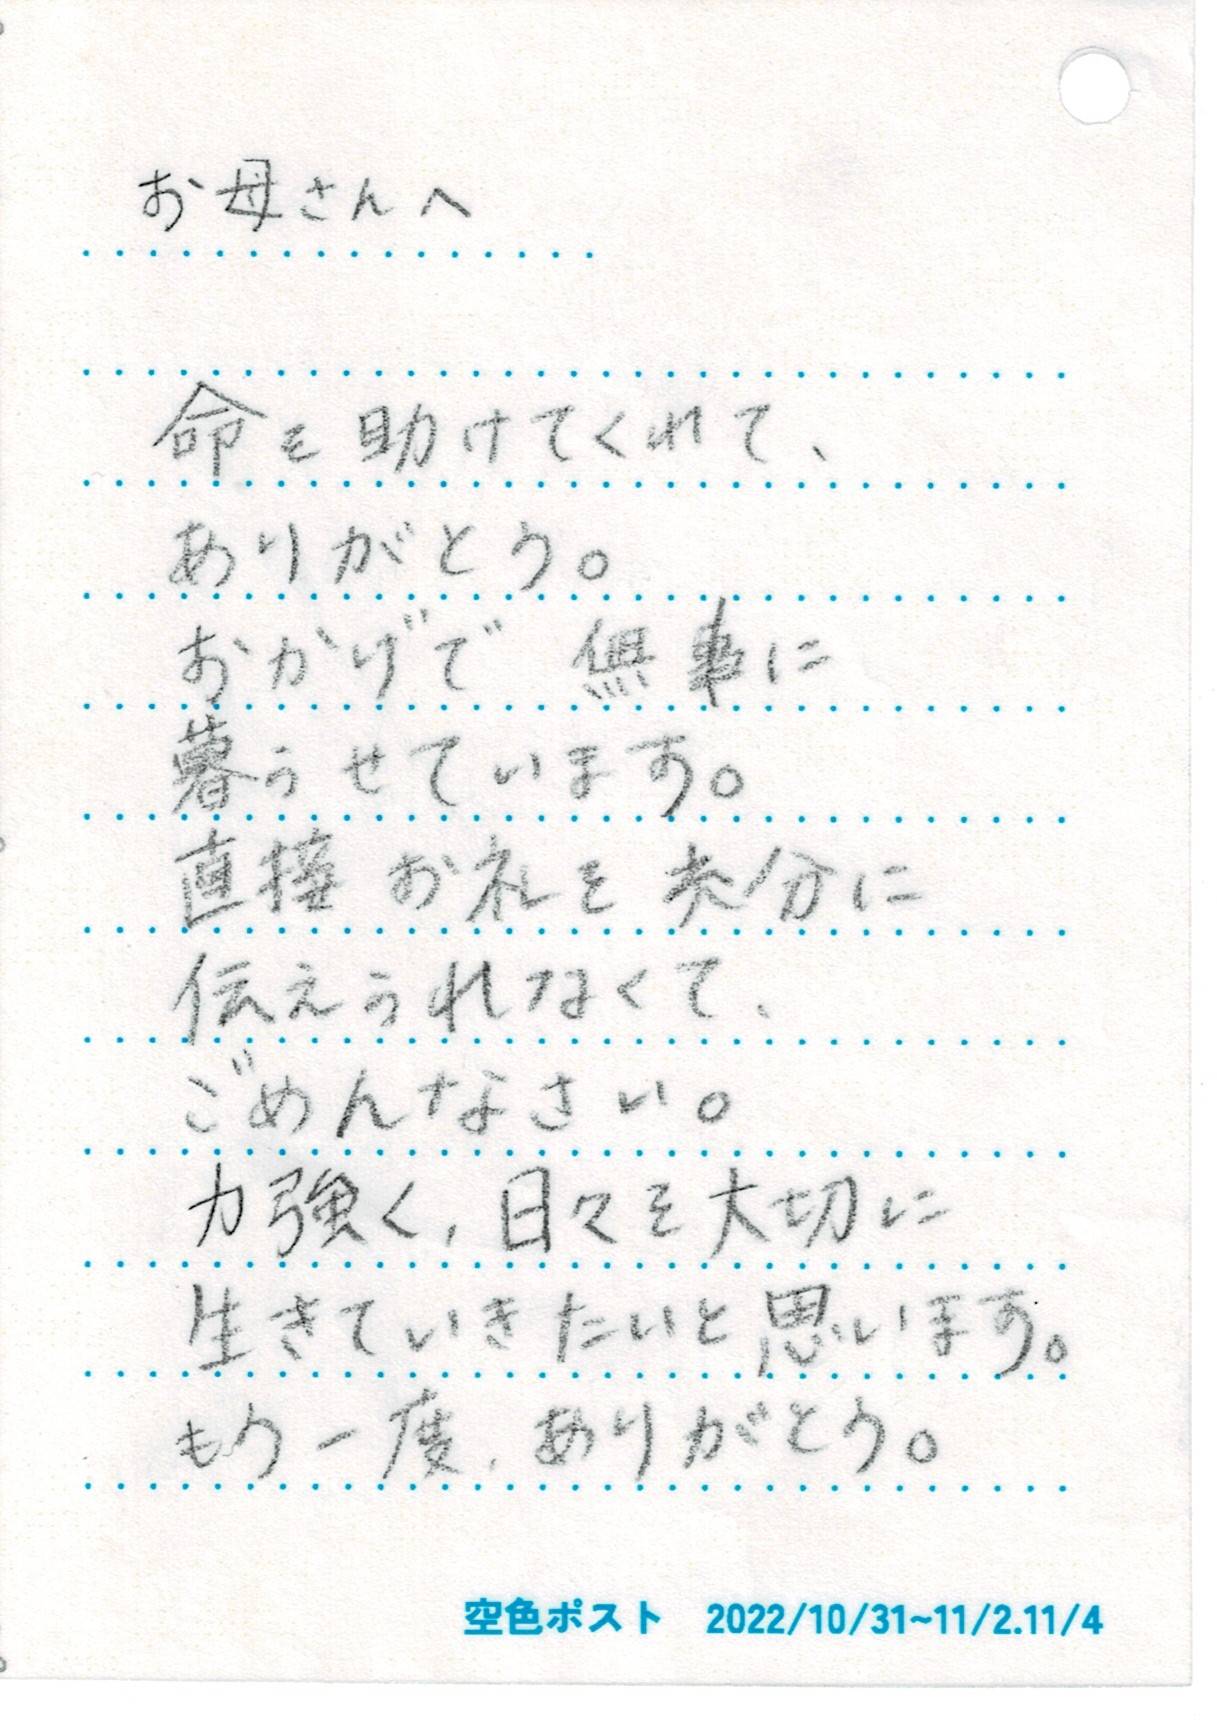 お母さんへ
命を助けてくれて、
ありがとう。
おかげで 無事に
暮らせています。
直接 お礼を 充分に
伝えられなくて、
ごめんなさい。
力強く、日々を大切に
生きていきたいと思います。
もう一度、ありがとう。
空色ポスト 2022/10/31~11/2.11/4